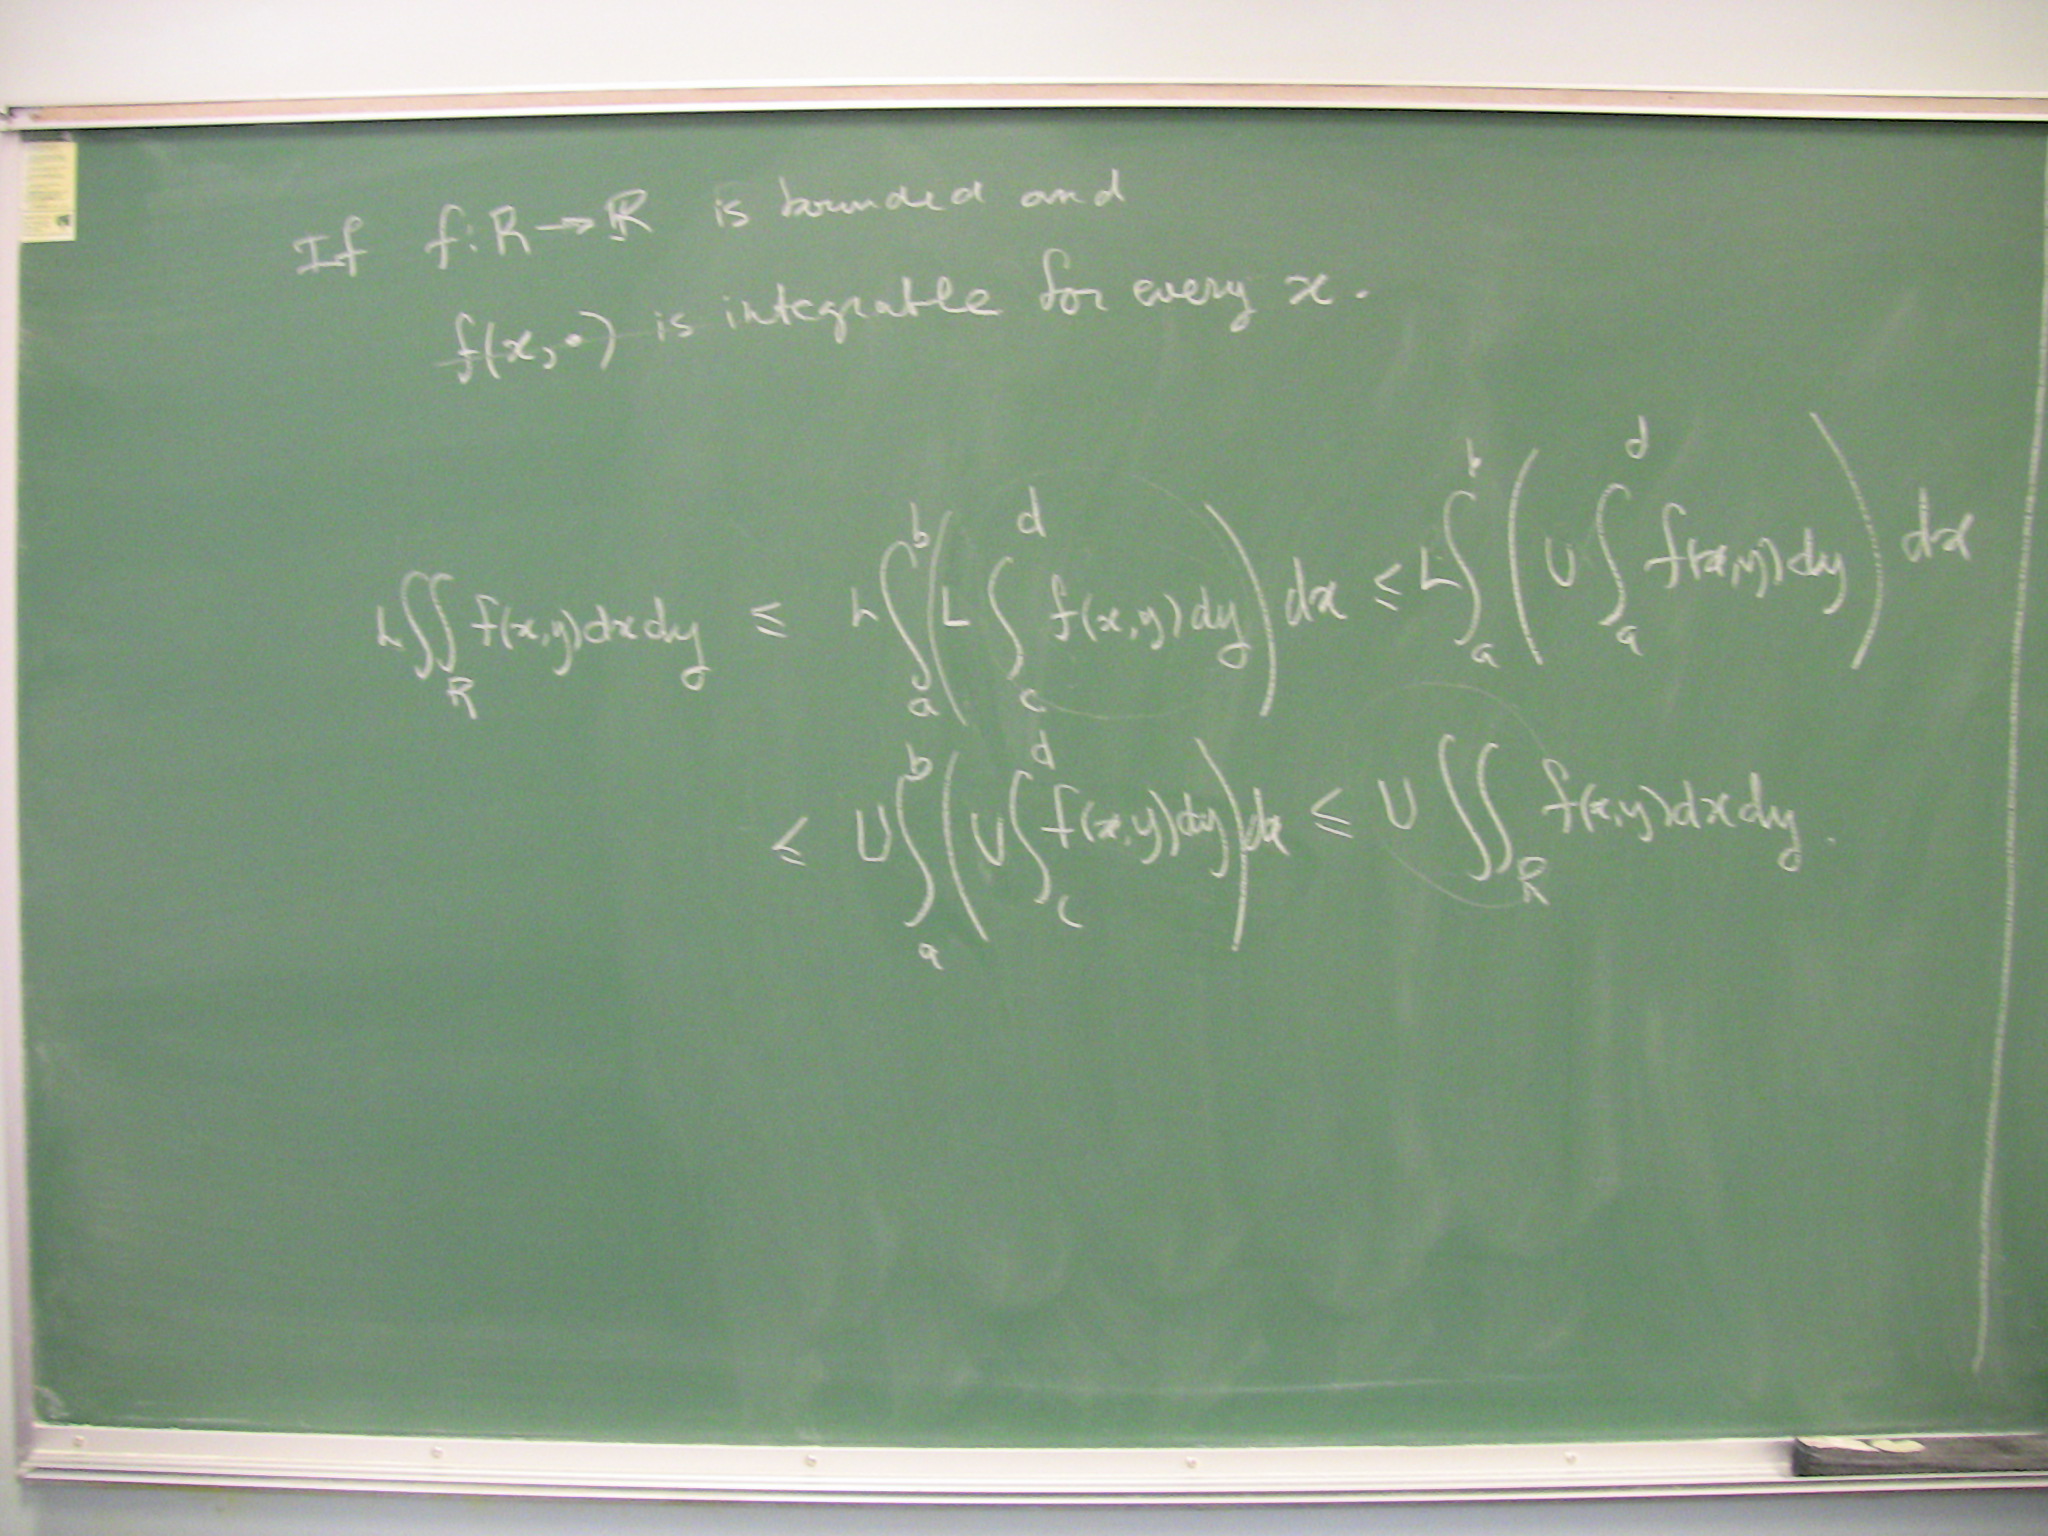 If f: R → ℝ is bounded and
f(x, •) is integrable for every x.
L∬_R f(x,y)dxdy ≤ L∫_a^b (L∫_c^d f(x,y)dy) dx ≤ L∫_a^b (U∫_a^d f(x,y)dy) dx
≤ U∫_a^b (U∫_c^d f(x,y)dy) dx ≤ U∬_R f(x,y)dxdy.